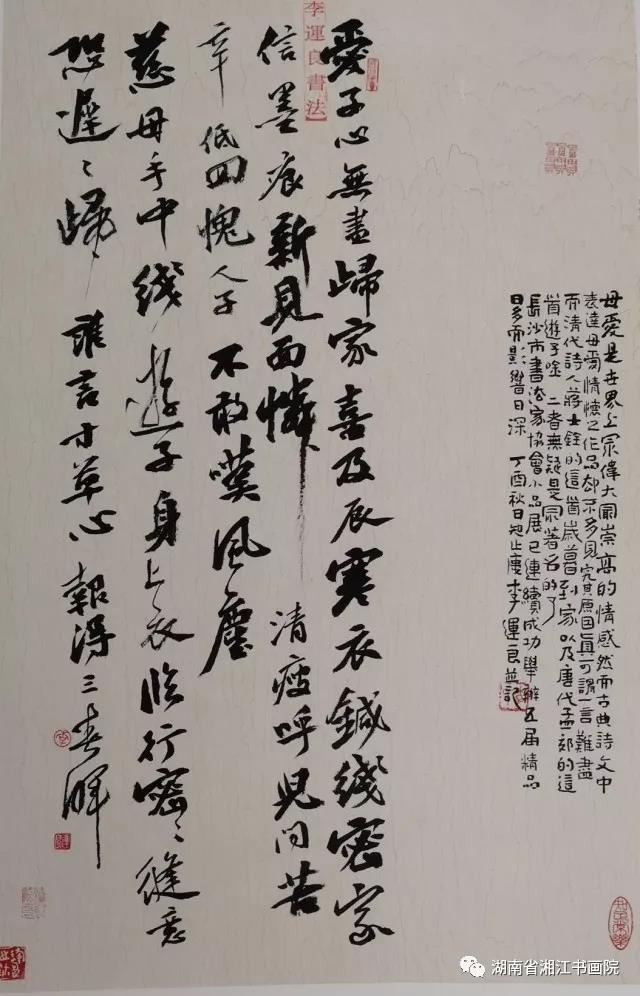 李運良書法
愛子心無盡歸家喜及辰寒衣鍼綫密家
信墨痕新見面憐清瘦呼兒問苦
辛低回愧人子不敢嘆風塵
慈母手中綫遊子身上衣臨行密〻縫意
恐遲〻歸誰言寸草心報得三春暉
母愛是世界上最偉大最崇高的情感然而古典詩文中
表達母愛情懷之作品却不多見究其原因真可謂一言難盡
而清代詩人蔣士銓的這首歲暮到家以及唐代孟郊的這
首遊子吟二者無疑是最著名的了
長沙市書法家協會小品展已連續成功舉辦五届精品
日多而影響日深丁酉秋日知止廔李運良並記
湖南省湘江书画院